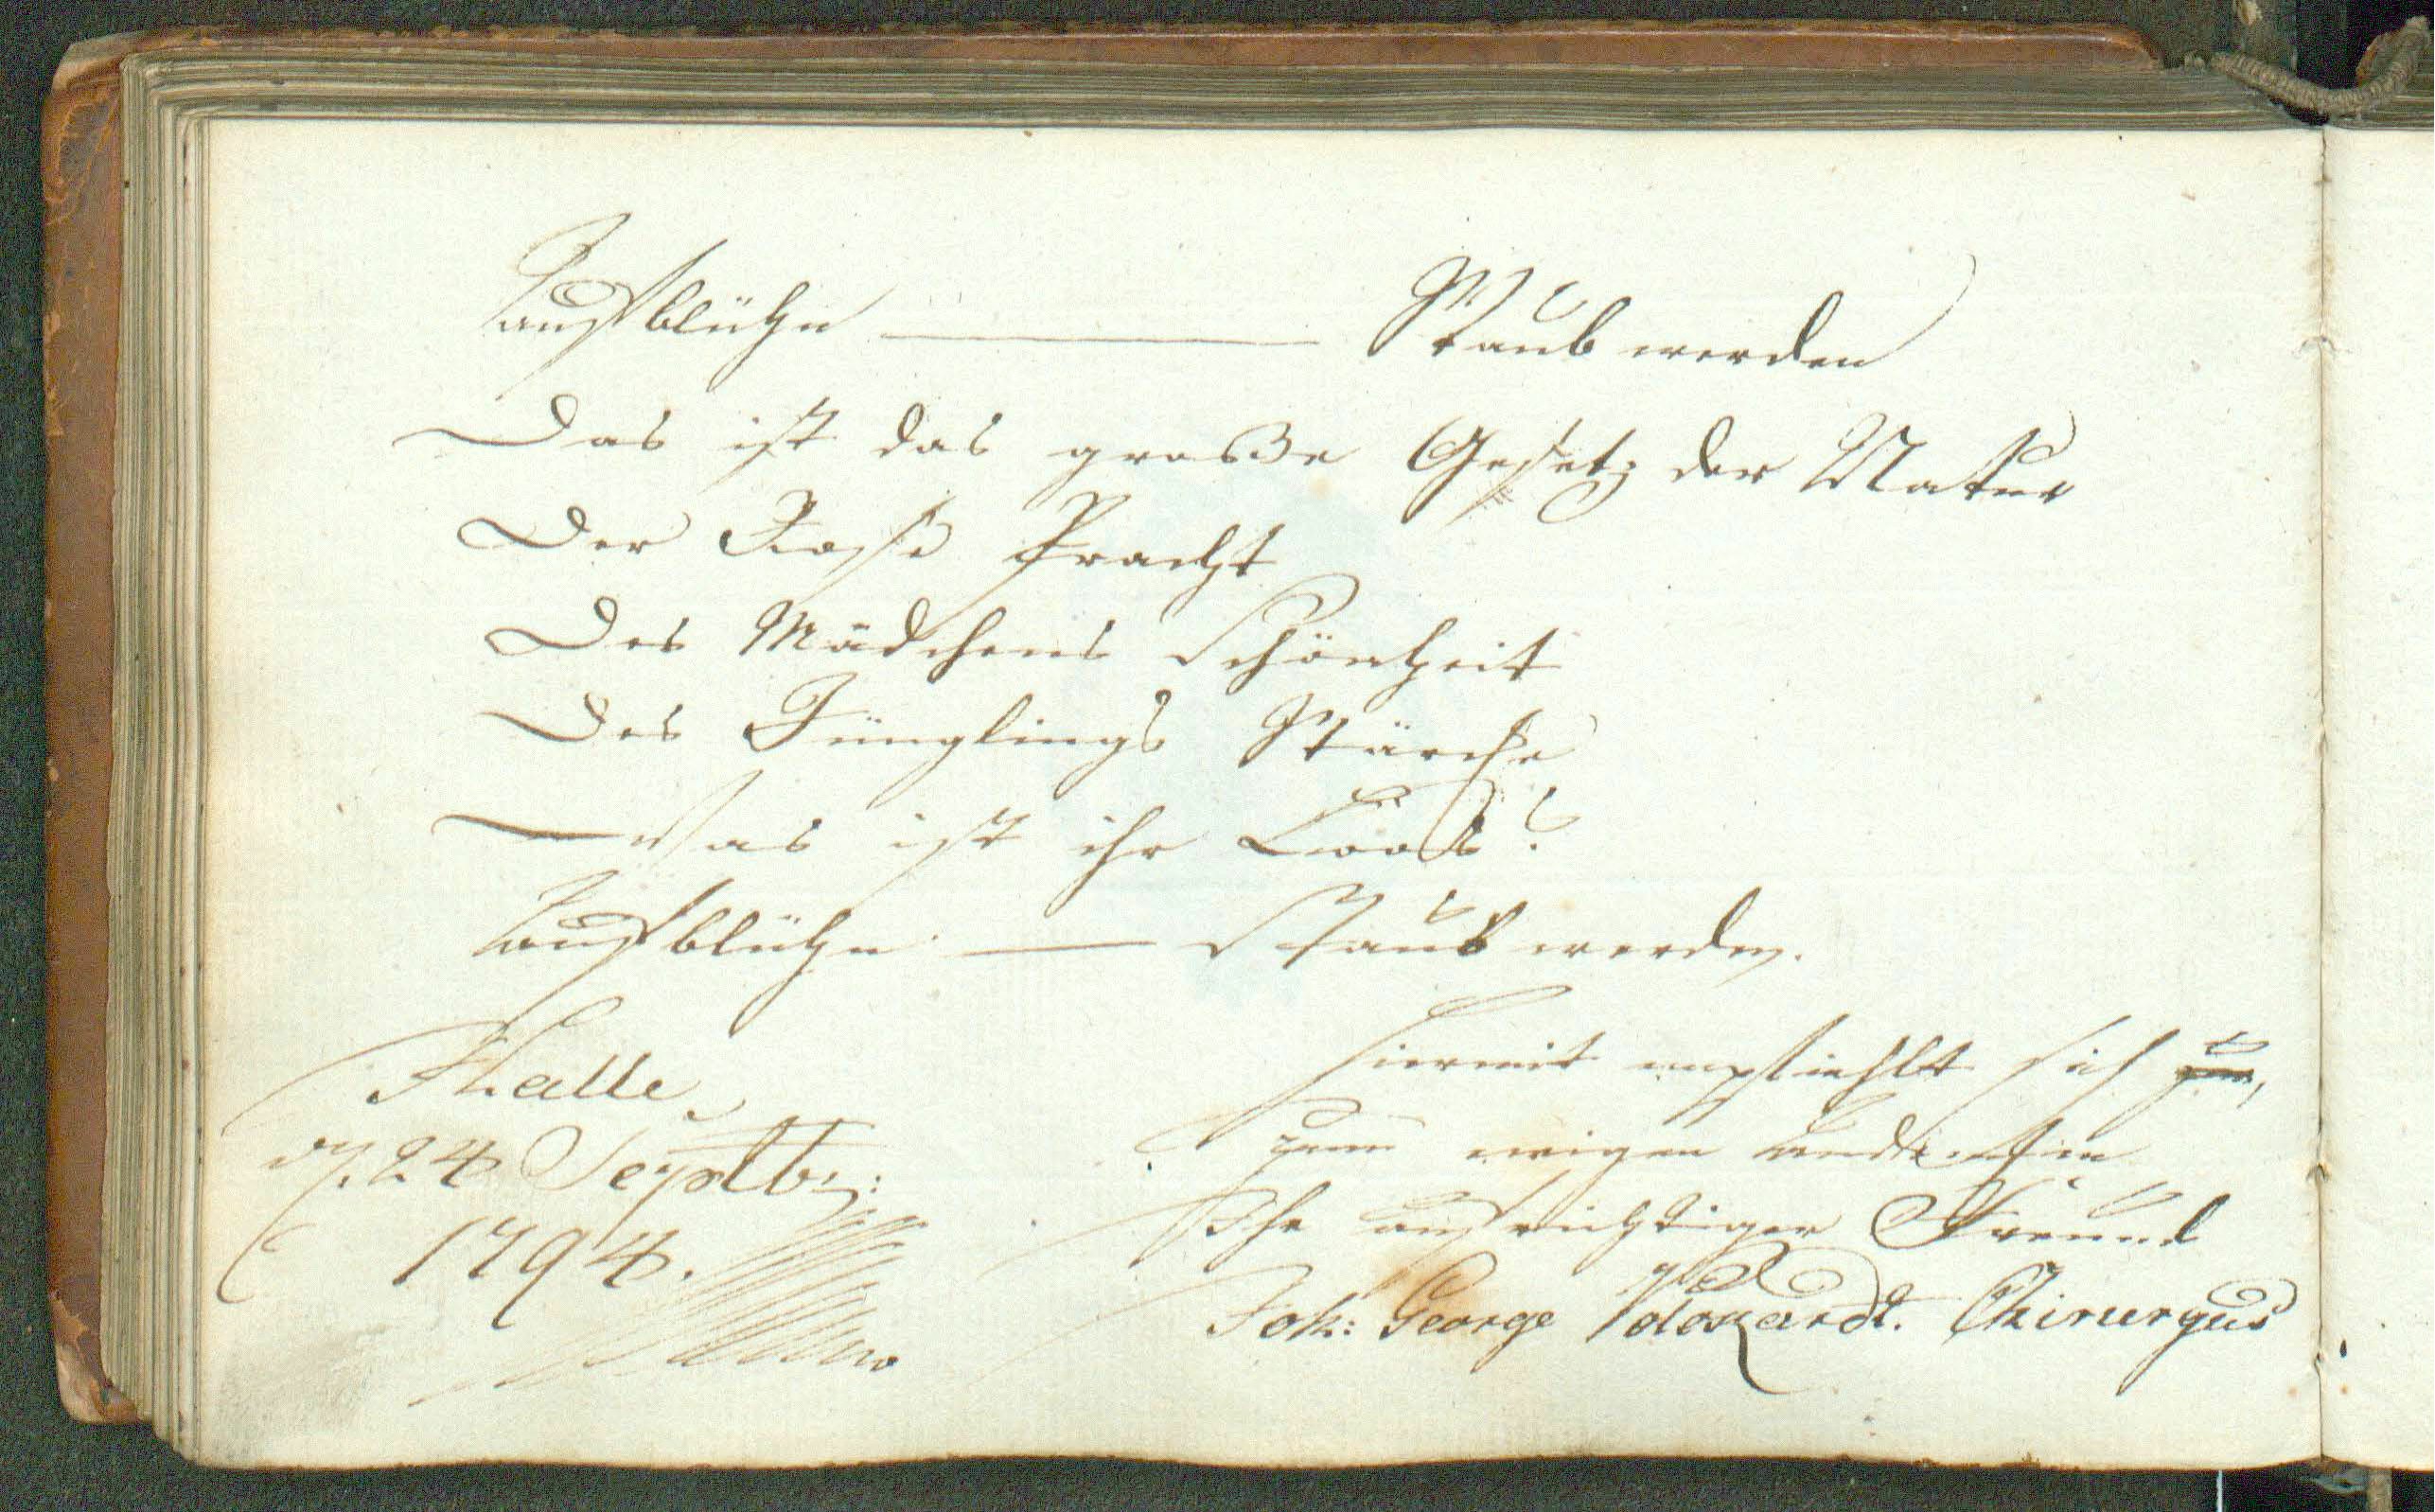 Aufblühn — Staub werden
Das ist das große Gesetz der Natur
Der Rose Pracht
Des Mädchens Schönheit
Des Jünglings Stärcke
Was ist ihr Loos?
Aufblühn — Staub werden.
Halle
d. 24 Septbr:
1794.
Hiermit empfiehlt sich zum
zum ewigen Andenken
Ihr aufrichtiger Freund
Joh: George Chirurgus